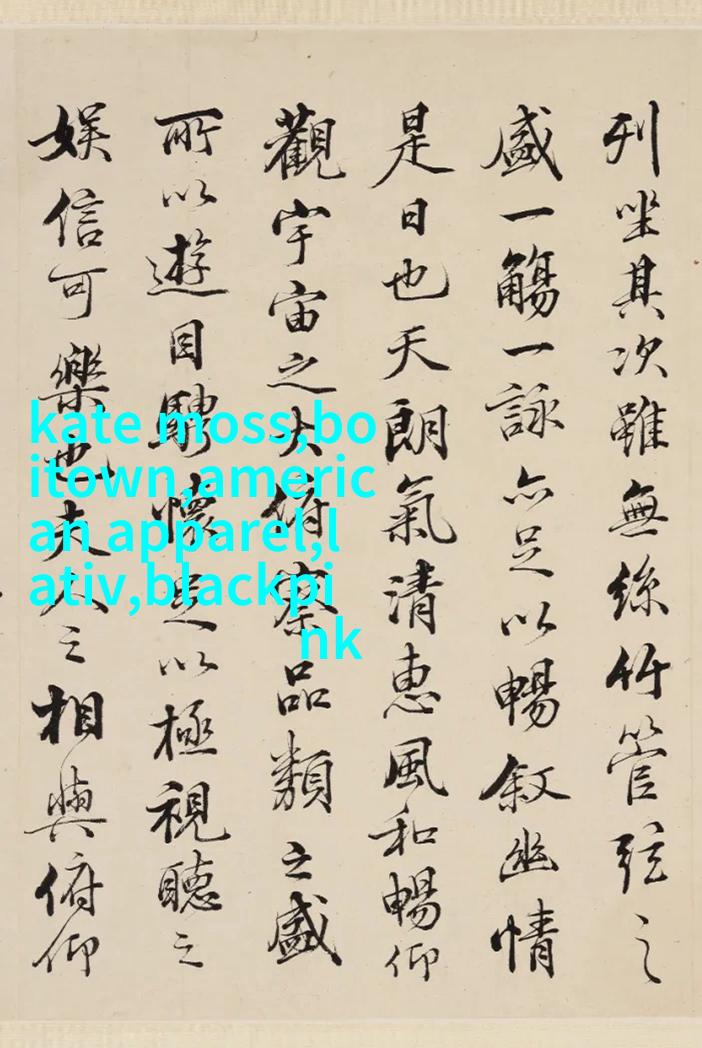 列坐其次雖無絲竹管弦之
盛一觴一詠亦足以暢敘幽情
是日也天朗氣清惠風和暢仰
觀宇宙之大俯察品類之盛
所以遊目騁懷足以極視聽之
娛信可樂也夫人之相與俯仰
kate moss,bo
itown,americ
an apparel,l
ativ,blackpi
nk